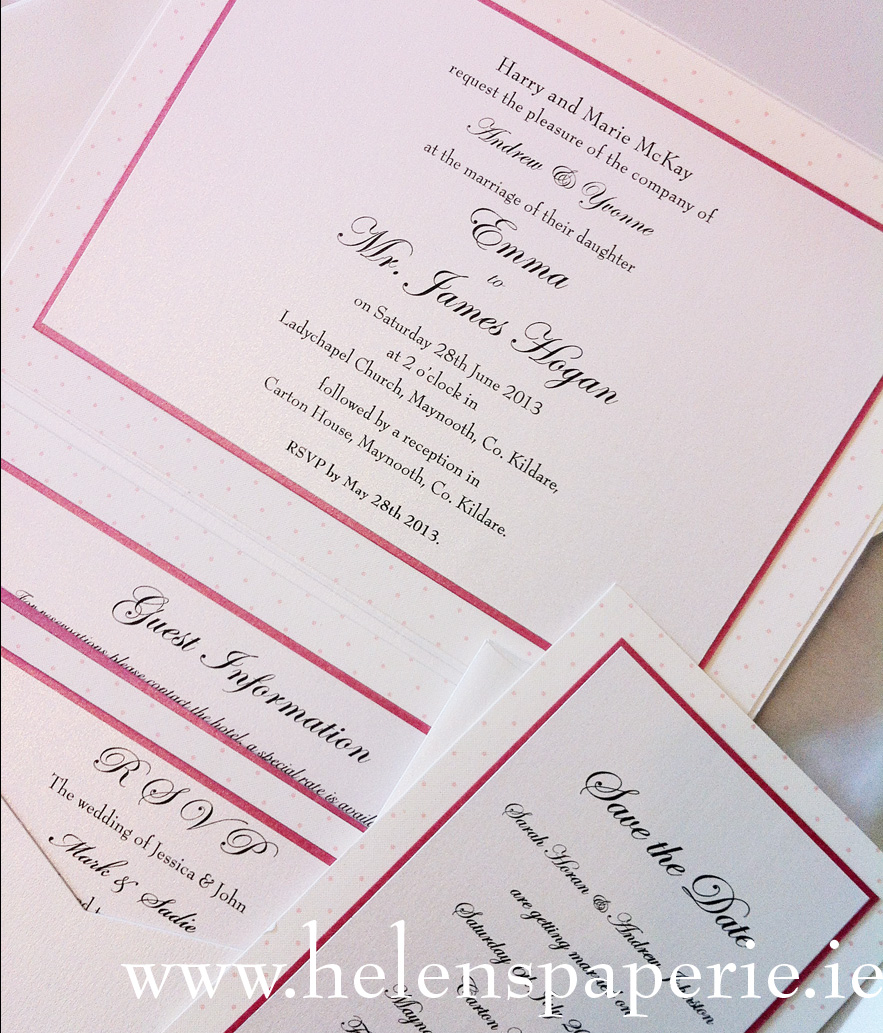 Harry and Marie McKay
request the pleasure of the company of
Andrew & Yvonne
at the marriage of their daughter
Emma
to
Mr. James Hogan
on Saturday 28th June 2013
at 2 o'clock in
Ladychapel Church, Maynooth, Co. Kildare,
followed by a reception in
Carton House, Maynooth, Co. Kildare.
RSVP by May 28th 2013.
Guest Information
For reservations please contact the hotel, a special rate is
RSVP
The wedding of Jessica & John
Mark & Sadie
Save the Date
Sarah Horan & Andrew
are getting married on
Saturday
Carton
www.helenspaperie.ie